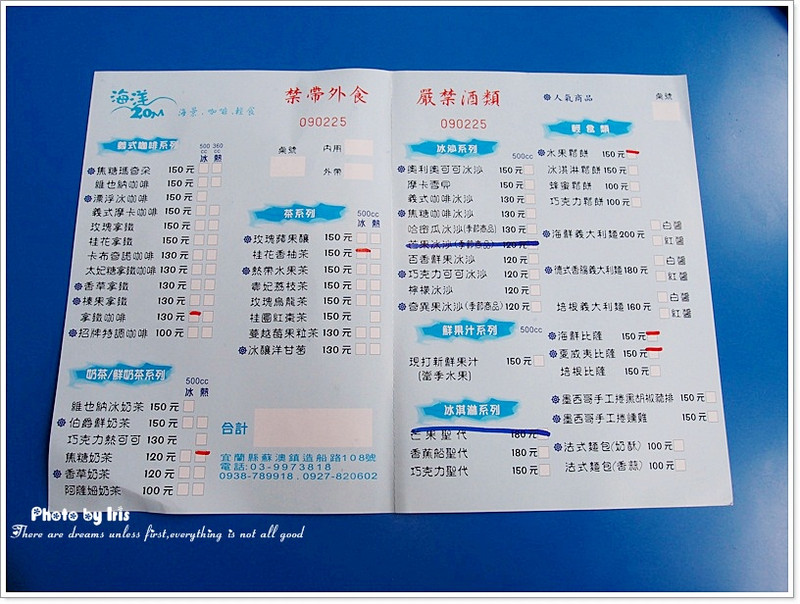 海洋
20M
海景、咖啡、輕食
禁帶外食
090225
義式咖啡系列
500cc 360cc
冰 熱
焦糖瑪奇朵 150元
維也納咖啡 150元
漂浮冰咖啡 150元
義式摩卡咖啡 150元
玫瑰拿鐵 150元
桂花拿鐵 150元
卡布奇諾咖啡 130元
太妃糖拿鐵咖啡 130元
香草拿鐵 130元
榛果拿鐵 130元
拿鐵咖啡 130元
招牌特調咖啡 100元
奶茶/鮮奶茶系列
500cc
冰 熱
維也納冰奶茶 150元
伯爵鮮奶茶 150元
巧克力熱可可 130元
焦糖奶茶 120元
香草奶茶 120元
阿薩姆奶茶 100元
桌號
內用
外帶
茶系列
500cc
冰 熱
玫瑰蘋果釀 150元
桂花香柚茶 150元
熱帶水果茶 150元
貴妃荔枝茶 150元
玫瑰烏龍茶 150元
桂圓紅棗茶 150元
蔓越莓果粒茶 130元
冰釀洋甘菊 130元
合計
宜蘭縣蘇澳鎮造船路108號
電話:03-9973818
0938-789918、0927-820602
嚴禁酒類
090225
冰沙系列
500cc
奧利奧可可冰沙 150元
摩卡雪泡 150元
義式咖啡冰沙 130元
焦糖咖啡冰沙 130元
哈密瓜冰沙(季節商品) 130元
芒果冰沙(季節商品) 120元
百香鮮果冰沙 120元
巧克力可可冰沙 120元
檸檬冰沙 120元
奇異果冰沙(季節商品) 120元
鮮果汁系列
500cc
現打新鮮果汁 150元
(當季水果)
冰淇淋系列
芒果聖代 180元
香蕉船聖代 150元
巧克力聖代 150元
人氣商品
桌號
輕食類
水果鬆餅 150元
冰淇淋鬆餅 150元
蜂蜜鬆餅 100元
巧克力鬆餅 100元
海鮮義大利麵 200元
白醬
紅醬
德式香腸義大利麵 180元
白醬
紅醬
培根義大利麵 160元
白醬
紅醬
海鮮比薩 150元
夏威夷比薩 150元
培根比薩 150元
墨西哥手工捲黑胡椒豬排 150元
墨西哥手工捲燻雞 150元
法式麵包(奶酥) 100元
法式麵包(香蒜) 100元
Photo by Iris
There are dreams unless first,everything is not all good